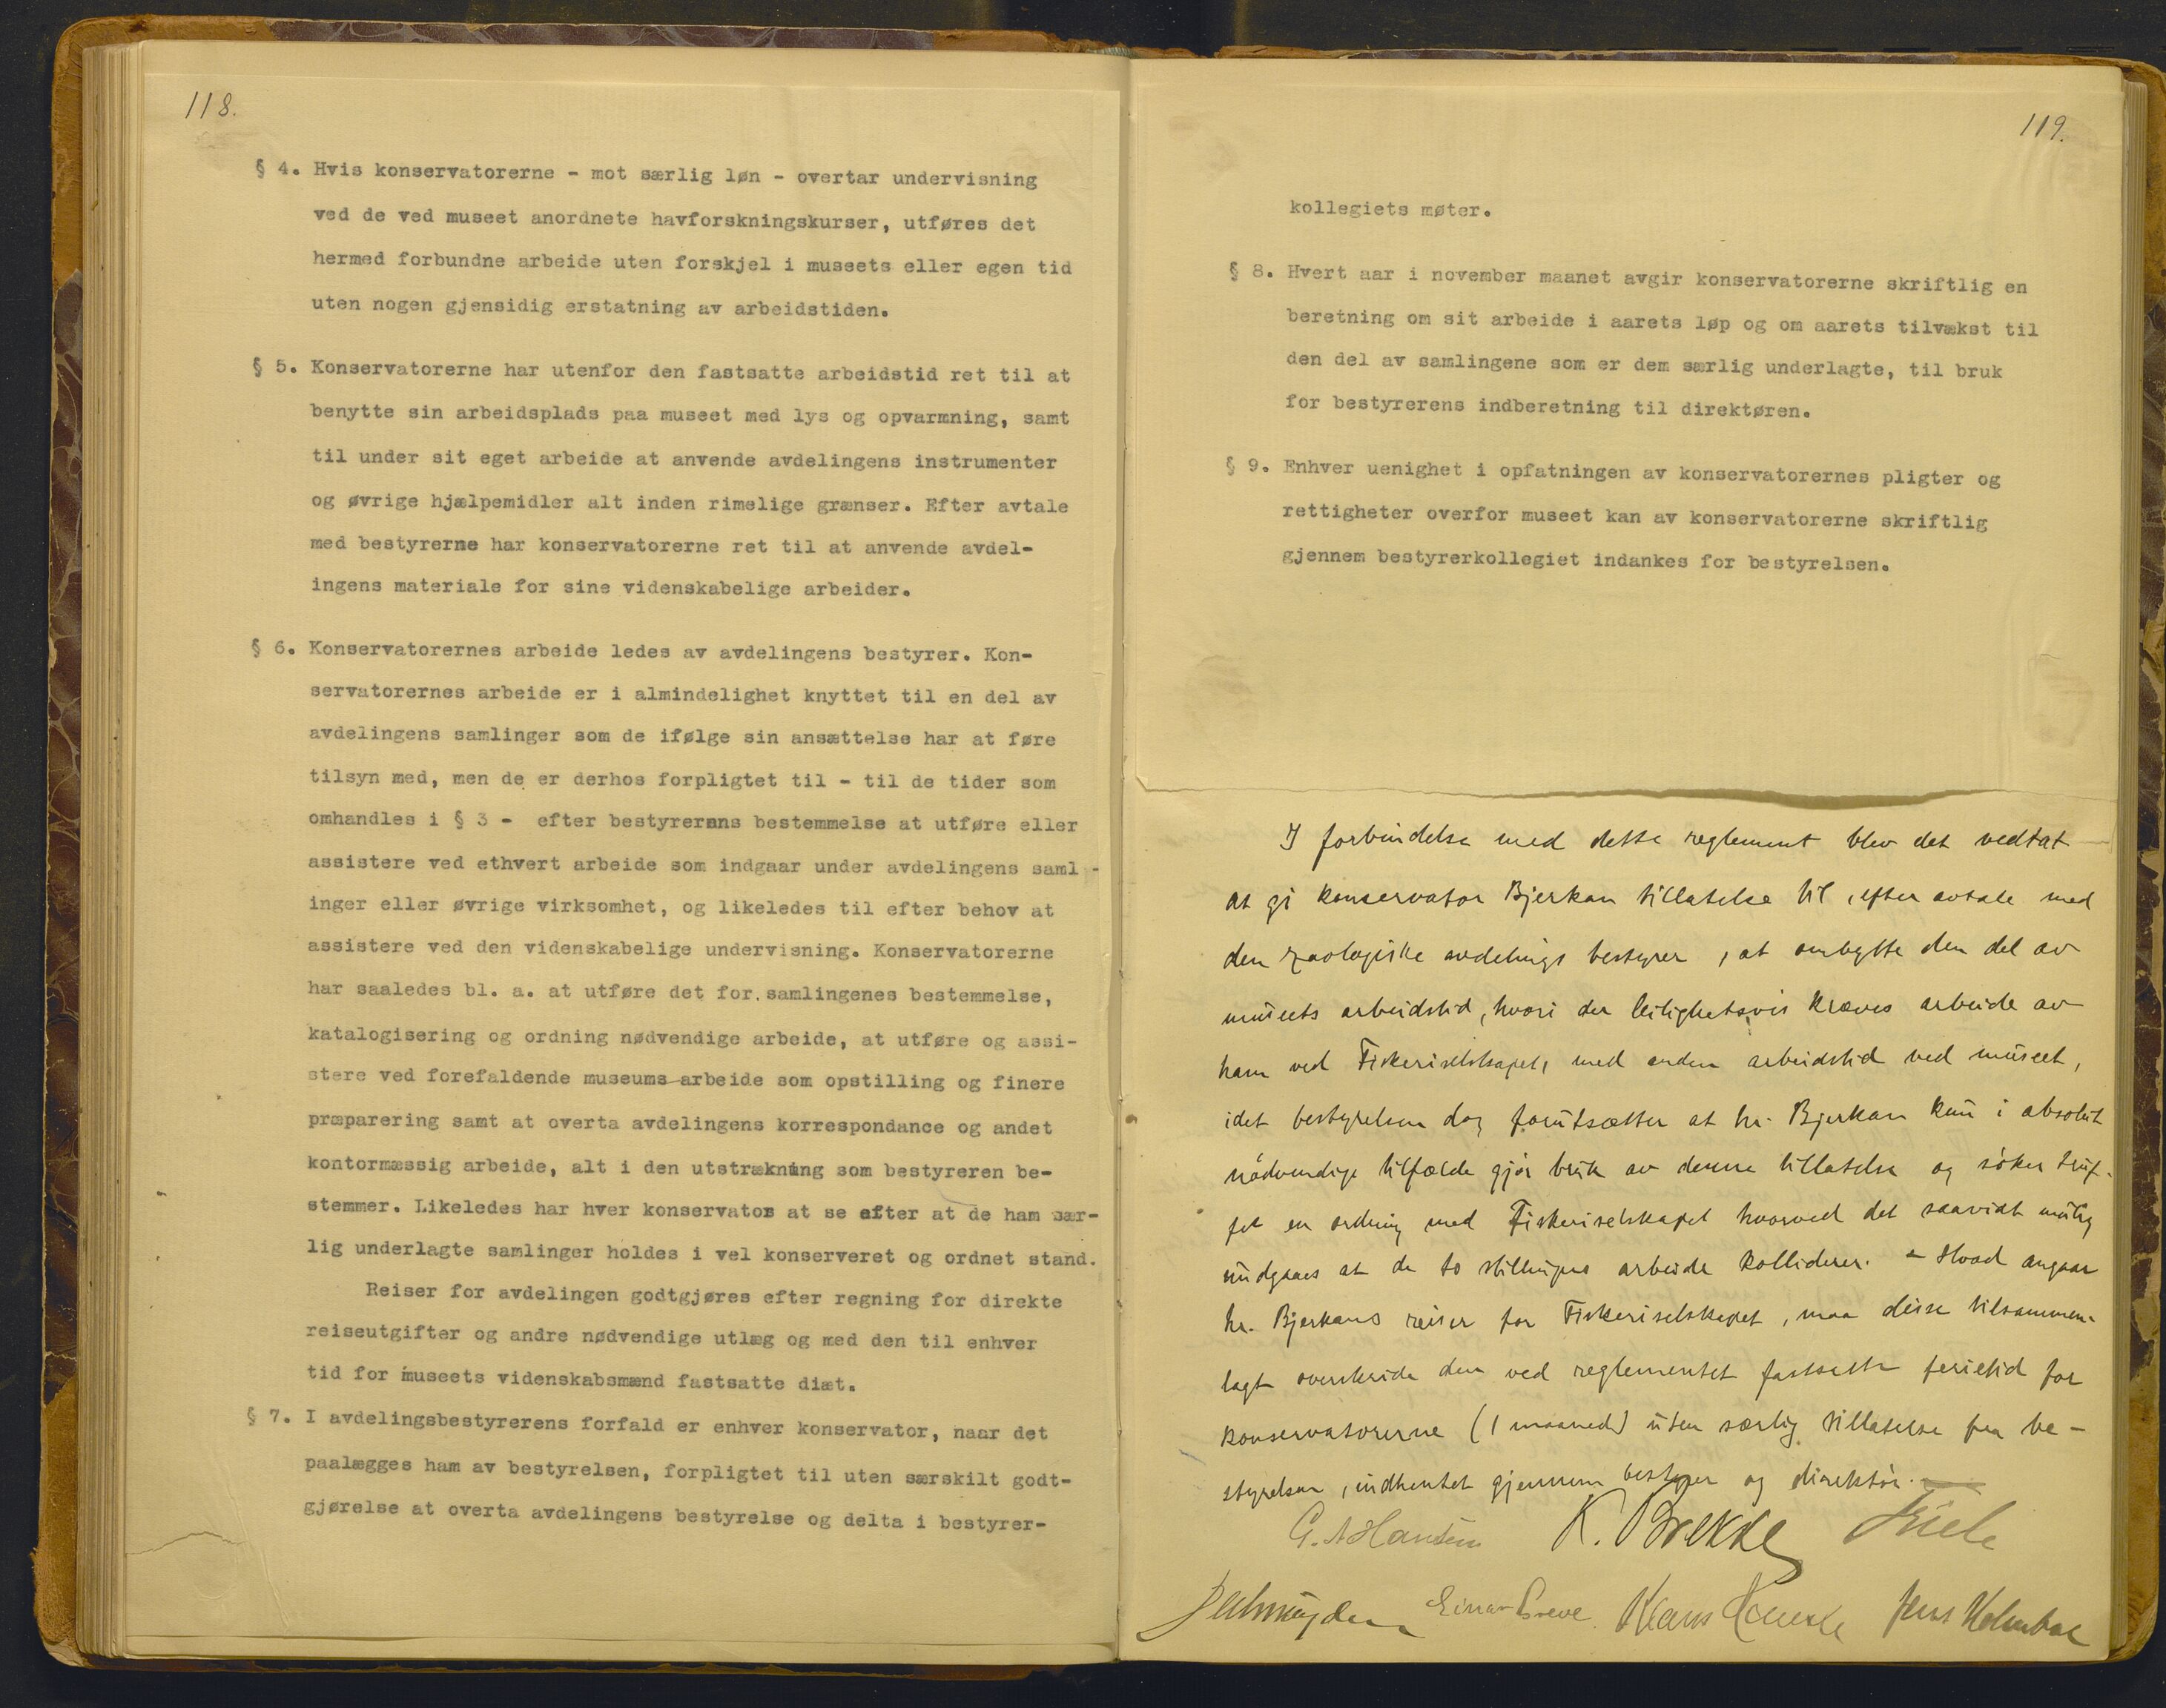 118.
§ 4. Hvis konservatorerne - mot særlig løn - overtar undervisning
ved de ved museet anordnete havforskningskurser, utføres det
hermed forbundne arbeide uten forskjel i museets eller egen tid
uten nogen gjensidig erstatning av arbeidstiden.
§ 5. Konservatorerne har utenfor den fastsatte arbeidstid ret til at
benytte sin arbeidsplads paa museet med lys og opvarmning, samt
til under sit eget arbeide at anvende avdelingens instrumenter
og øvrige hjælpemidler alt inden rimelige grænser. Efter avtale
med bestyrerne har konservatorerne ret til at anvende avdel-
ingens materiale for sine videnskabelige arbeider.
§ 6. Konservatorernes arbeide ledes av avdelingens bestyrer. Kon-
servatorernes arbeide er i almindelighet knyttet til en del av
avdelingens samlinger som de ifølge sin ansættelse har at føre
tilsyn med, men de er derhos forpligtet til - til de tider som
omhandles i § 3 - efter bestyrerens bestemmelse at utføre eller
assistere ved ethvert arbeide som indgaar under avdelingens saml-
inger eller øvrige virksomhet, og likeledes til efter behov at
assistere ved den videnskabelige undervisning. Konservatorerne
har saaledes bl. a. at utføre det for samlingenes bestemmelse,
katalogisering og ordning nødvendige arbeide, at utføre og assi-
stere ved forefaldende museums arbeide som opstilling og finere
præparering samt at overta avdelingens korrespondance og andet
kontormæssig arbeide, alt i den utstrækning som bestyreren be-
stemmer. Likeledes har hver konservator at se efter at de ham sær-
lig underlagte samlinger holdes i vel konserveret og ordnet stand.
Reiser for avdelingen godtgjøres efter regning for direkte
reiseutgifter og andre nødvendige utlæg og med den til enhver
tid for museets videnskabsmænd fastsatte diæt.
§ 7. I avdelingsbestyrerens forfald er enhver konservator, naar det
paalægges ham av bestyrelsen, forpligtet til uten særskilt godt-
gjørelse at overta avdelingens bestyrelse og delta i bestyrer-
119.
kollegiets møter.
§ 8. Hvert aar i november maanet avgir konservatorerne skriftlig en
beretning om sit arbeide i aarets løp og om aarets tilvækst til
den del av samlingene som er dem særlig underlagte, til bruk
for bestyrerens indberetning til direktøren.
§ 9. Enhver uenighet i opfatningen av konservatorernes pligter og
rettigheter overfor museet kan av konservatorerne skriftlig
gjennem bestyrerkollegiet indankes for bestyrelsen.
I forbindelse med dette reglement blev det vedtat
at gi konservator Bjerkan tillatelse til, efter avtale med
den zoologiske avdelings bestyrer, at ombytte den del av
museets arbeidstid, hvori der leilighetsvis kræves arbeide av
ham ved Fiskeriselskapet, med anden arbeidstid ved museet,
idet bestyrelsen dog forutsætter at hr. Bjerkan kun i absolut
nödvendige tilfælde gjör bruk av denne tillatelse og söker truf-
fet en ordning med Fiskeriselskapet hvorved det saavidt mulig
undgaaes at de to stillingers arbeide kolliderer. - Hvad angaar
hr. Bjerkans reiser for Fiskeriselskapet, maa disse tilsammen-
lagt overskride den ved reglementet fastsatte ferietid for
konservatorerne (1 maaned) uten særlig tillatelse fra be-
styrelsen, indhentet gjennem bestyrer og direktör.
G. A Hansen K. Brekke
Einar Greve Hans Jens Holmboe